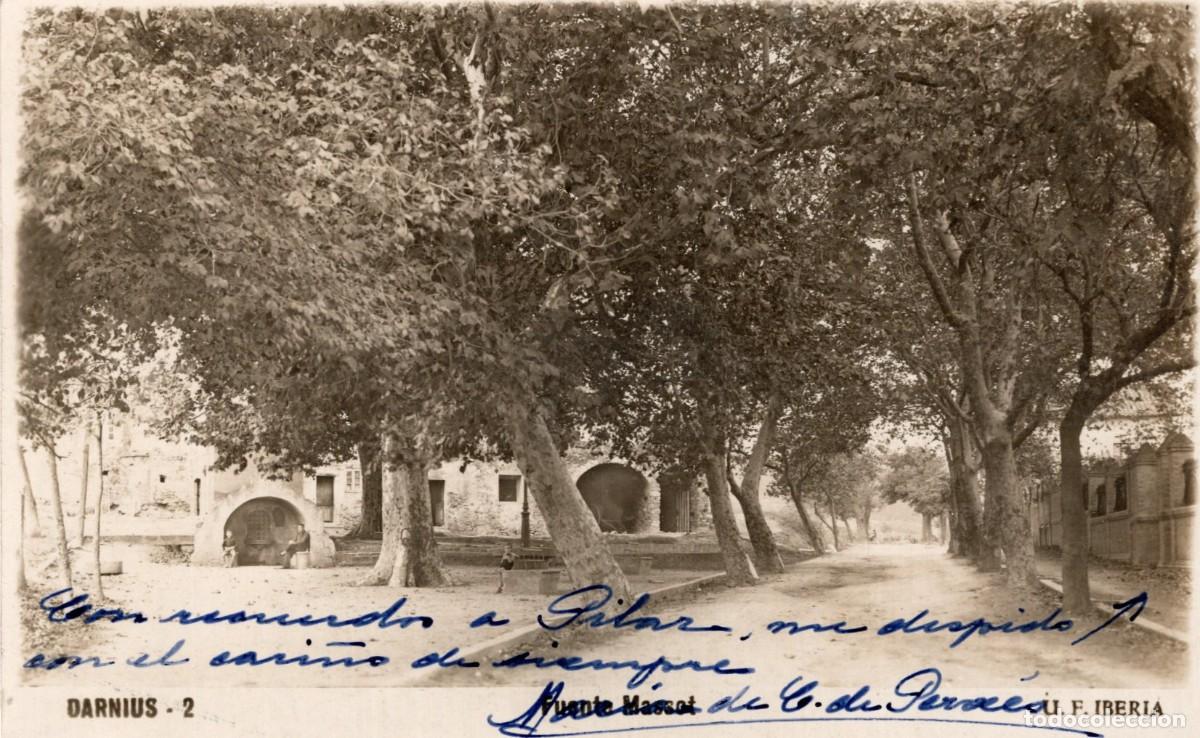 Con recuerdos a Pilar, me despido
con el cariño de siempre
DARNIUS - 2
Fuente Massot
U. F. IBERIA
María de C. de
todocoleccion